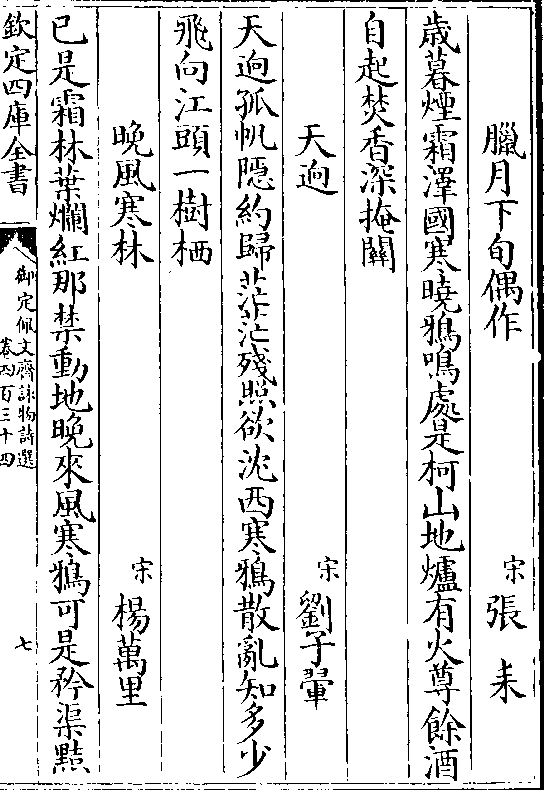 臘月下旬偶作　宋　張耒
歲暮煙霜澤國寒曉鴉鳴處是柯山地爐有火尊餘酒
自起焚香深掩關
天迥　宋　劉子翬
天迥孤帆隱約歸茫茫殘照欲沈西寒鴉散亂知多少
飛向江頭一樹栖
晚風寒林　宋　楊萬里
已是霜林葉爛紅那禁動地晚來風寒鴉可是矜渠黠
欽定四庫全書　御定佩文齋詠物詩選　卷四百三十四　七